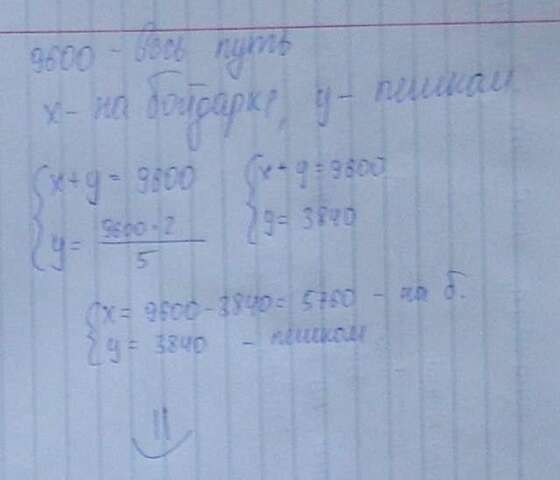 9600 - весь путь
x - на байдарке, y - пешком
{x+y = 9600 {x+y = 9600
{y = 9600·2/5 {y = 3840
{x = 9600-3840 = 5760 - на б.
{y = 3840 - пешком